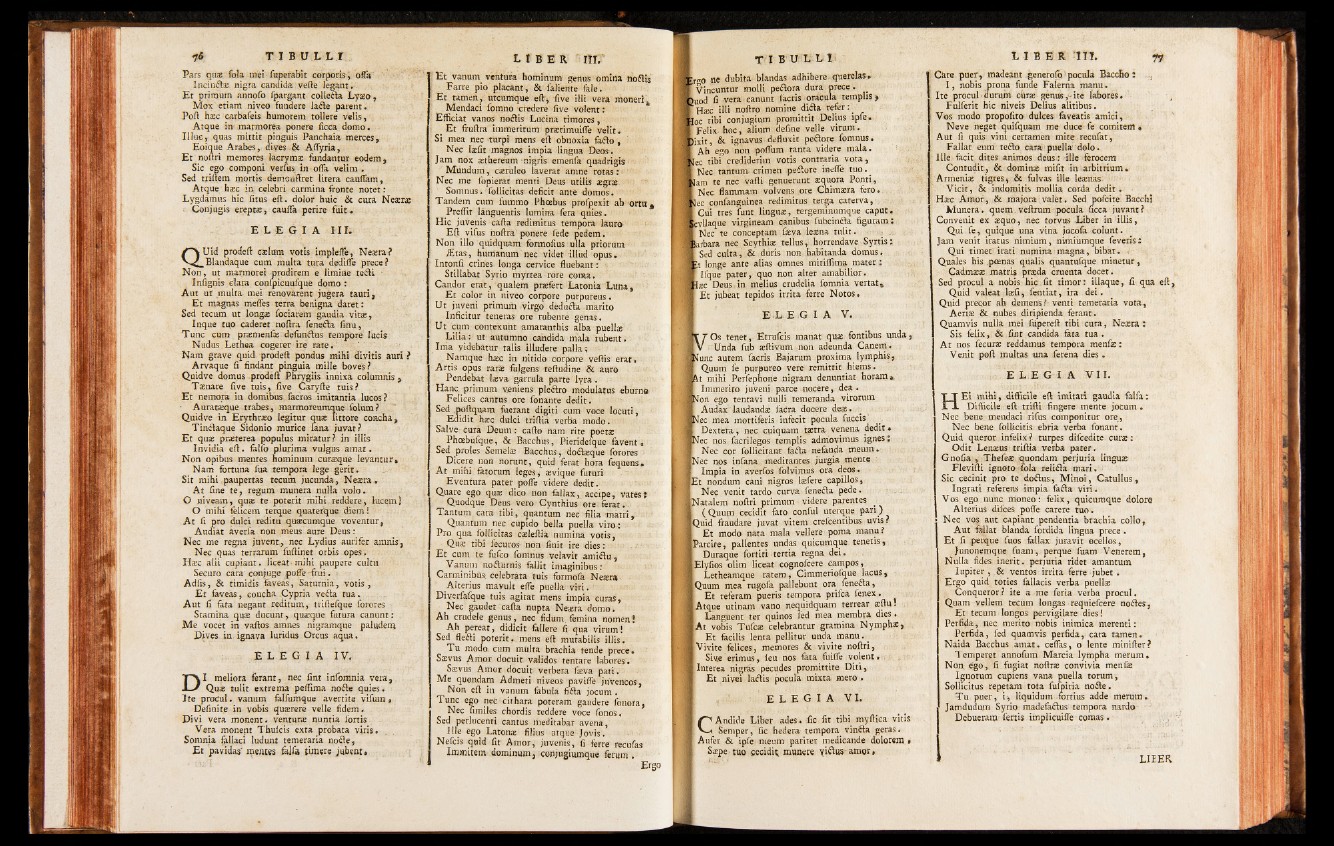 76 TIBULLI
Pars quæ sola mei superabit corporis, ossa
Incinctæ nigra candida veste legant.
Et primum annoso spargant collecta Lyæo,
Mox etiam niveo fundere lacte parent.
Post hæc carbaseis humorem tollere velis,
Atque in marmorea ponere sicca domo.
Illuc, quas mittit pinguis Panchaia merces,
Eoique Arabes, dives & Assyria,
Et nostri memores lacrymæ fundantur eodem,
Sic ego componi versus in ossa velim.
Sed tristem mortis demonstret litera caussam,
Atque hæc in celebri carmina fronte notet:
Lygdamus hic situs est. dolor huic & cura Neæræ
Conjugis ereptæ, caussa perire fuit.
ELEGIA III.
QUid prodest cælum votis implesse, Neæra?
Blandaque cum multa tura dedisse prece?
Non, ut marmorei prodirem e limine tecti
Insignis clara conspicuusque domo:
Aut ut multa mei renovarent jugera tauri,
Et magnas messes terra benigna daret:
Sed tecum ut longæ sociarem gaudia vitæ,
Inque tuo caderet nostra senecta sinu,
Tunc cum præmensæ defunctus tempore lucis
Nudus Lethea cogerer ire rate.
Nam grave quid prodest pondus mihi divitis auri?
Arvaque si findant pinguia mille boves?
Quidve domus prodest Phrygiis innixa columnis,
Tænare sive tuis, sive Caryste tuis?
Et nemora in domibus sacros imitantia lucos?
Auratæque trabes, marmoreumque solum?
Quidve in Erythræo legitur quæ littore concha,
Tinctaque Sidonio murice lana juvat?
Et quæ præterea populus miratur? in illis
Invidia est. falso plurima vulgus amat.
Non opibus mentes hominum curæque levantur.
Nam fortuna sua tempora lege gerit.
Sit mihi paupertas tecum jucunda, Neæra.
At sine te, regum munera nulla volo.
O niveam, quæ te poterit mihi reddere, lucem!
O mihi felicem terque quaterque diem!
At si pro dulci reditu quæcumque voventur,
Audiat aversa non meus aure Deus:
Nec me regna juvent, nec Lydius aurifer amnis,
Nec quas terrarum sustinet orbis opes.
Hæc alii cupiant. liceat mihi paupere cultu
Securo cara conjuge posse frui.
Adsis, & timidis faveas, Saturnia, votis,
Et faveas, concha Cypria vecta tua.
Aut si fata negant reditum, tristesque sorores
Stamina quæ ducunt, quæque futura canunt:
Me vocet in vastos amnes nigramque paludem
Dives in ignava luridus Orcus aqua.
ELEGIA IV.
DI meliora ferant, nec sint insomnia vera,
Quæ tulit extrema pessima nocte quies.
Ite procul. vanum falsumque avertite visum,
Desinite in vobis quærere velle fidem.
Divi vera monent. venturæ nuntia sortis
Vera monent Thuscis exta probata viris.
Somnia fallaci ludunt temeraria nocte,
Et pavidas mentes falsa timere jubent.
LIBER III.
Et vanum ventura hominum genus omina noctis
Farre pio placant, & saliente sale.
Et tamen, utcumque est, sive illi vera moneri,
Mendaci somno credere sive volent:
Efficiat vanos noctis Lucina timores,
Et frustra immeritum pertimuisse velit.
Si mea nec turpi mens est obnoxia facto,
Nec læsit magnos impia lingua Deos.
Jam nox æthereum nigris emensa quadrigis
Mundum, cæruleo laverat amne rotas:
Nec me sopierat menti Deus utilis ægræ
Somnus. sollicitas deficit ante domos.
Tandem cum summo Phœbus prospexit ab ortu,
Pressit languentis lumina sera quies.
Hic juvenis casta redimitus tempora lauro
Est visus nostra ponere sede pedem.
Non illo quidquam formosius ulla priorum
Ætas, humanum nec videt illud opus.
Intonsi crines longa cervice fluebant:
Stillabat Syrio myrtea rore coma.
Candor erat, qualem præfert Latonia Luna,
Et color in niveo corpore purpureus.
Ut juveni primum virgo deducta marito
Inficitur teneras ore rubente genas.
Ut cum contexunt amaranthis alba puellæ
Lilia: ut autumno candida mala rubent.
Ima videbatur talis illudere palla:
Namque hæc in nitido corpore vestis erat.
Artis opus raræ fulgens testudine & auro
Pendebat læva garrula parte lyra.
Hanc primum veniens plectro modulatus eburno
Felices cantus ore sonante dedit.
Sed postquam fuerant digiti cum voce locuti,
Edidit hæc dulci tristia verba modo.
Salve cura Deum: casto nam rite poetæ
Phœbusque, & Bacchus, Pieridesque favent.
Sed proles Semelæ Bacchus, doctæque sorores
Dicere non norunt, quid ferat hora sequens.
At mihi fatorum leges, ævique futuri
Eventura pater posse videre dedit.
Quare ego quæ dico non fallax, accipe, vates:
Quodque Deus vero Cynthius ore ferat.
Tantum cara tibi, quantum nec filia matri,
Quantum nec cupido bella puella viro:
Pro qua sollicitas cælestia numina votis,
Quæ tibi securos non sinit ire dies:
Et cum te fusco somnus velavit amictu,
Vanum nocturnis fallit imaginibus:
Carminibus celebrata tuis formosa Neæra
Alterius mavult esse puella viri.
Diversasque tuis agitat mens impia curas,
Nec gaudet casta nupta Neæra domo.
Ah crudele genus, nec fidum femina nomen!
Ah pereat, didicit fallere si qua virum!
Sed flecti poterit. mens est mutabilis illis.
Tu modo cum multa brachia tende prece.
Sævus Amor docuit validos tentare labores.
Sævus Amor docuit verbera sæva pati.
Me quondam Admeti niveos pavisse juvencos,
Non est in vanum fabula ficta jocum.
Tunc ego nec cithara poteram gaudere sonora,
Nec similes chordis reddere voce sonos.
Sed perlucenti cantus meditabar avena,
Ille ego Latonæ filius atque Jovis.
Nescis quid sit Amor, juvenis, si ferre recusas
Immitem dominum, conjugiumque ferum.
Ergo
TIBULLI
Ergo ne dubita blandas adhibere querelas.
Vincuntur molli pectora dura prece.
Quod si vera canunt sacris oracula templis,
Hæc illi nostro nomine dicta refer:
Hoc tibi conjugium promittit Delius ipse.
Felix hoc, alium desine velle virum.
Dixit, & ignavus defluxit pectore somnus.
Ah ego non possum tanta videre mala.
Nec tibi crediderim votis contraria vota,
Nec tantum crimen pectore inesse tuo.
Nam te nec vasti genuerunt æquora Ponti,
Nec flammam volvens ore Chimæra fero.
Nec consanguinea redimitus terga caterva,
Cui tres sunt linguæ, tergeminumque caput.
Scyllaque virgineam canibus subcincta figuram:
Nec te conceptam sæva leæna tulit.
Barbara nec Scythiæ tellus, horrendave Syrtis:
Sed culta, & doris non habitanda domus.
Et longe ante alias omnes mitissima mater:
Isque pater, quo non alter amabilior.
Hæc Deus in melius crudelia somnia vertat,
Et jubeat tepidos irrita ferre Notos.
ELEGIA V.
VOs tenet, Etruscis manat quæ fontibus unda,
Unda sub æstivum non adeunda Canem.
Nunc autem sacris Bajarum proxima lymphis,
Quum se purpureo vere remittit hiems.
At mihi Persephone nigram denuntiat horam.
Immerito juveni parce nocere, dea.
Non ego tentavi nulli temeranda virorum
Audax laudandæ sacra docere deæ.
Nec mea mortiferis infecit pocula succis
Dextera, nec cuiquam tætra venena dedit.
Nec nos sacrilegos templis admovimus ignes:
Nec cor sollicitant facta nefanda meum.
Nec nos insana meditantes jurgia mente
Impia in aversos solvimus ora deos.
Et nondum cani nigros læsere capillos,
Nec venit tardo curva senecta pede.
Natalem nostri primum videre parentes
(Quum cecidit fato consul uterque pari)
Quid fraudare juvat vitem crescentibus uvis?
Et modo nata mala vellere poma manu?
Parcite, pallentes undas quicumque tenetis,
Duraque sortiti tertia regna dei.
Elysios olim liceat cognoscere campos,
Letheamque ratem, Cimmeriosque lacus,
Quum mea rugosa pallebunt ora senecta,
Et referam pueris tempora prisca senex.
Atque utinam vano nequidquam terrear æstu!
Languent ter quinos sed mea membra dies.
At vobis Tuscæ celebrantur gramina Nymphæ,
Et facilis lenta pellitur unda manu.
Vivite felices, memores & vivite nostri,
Sive erimus, seu nos fata fuisse volent.
Interea nigras pecudes promittite Diti,
Et nivei lactis pocula mixta mero.
ELEGIA VI.
CAndide Liber ades. sic sit tibi mystica vitis
Semper, sic hedera tempora vincta geras.
Aufer & ipse meum pariter medicande dolorem,
Sæpe tuo cecidit munere victus amor.
LIBER III. 77
Care puer, madeant generoso pocula Baccho:
I, nobis prona funde Falerna manu.
Ite procul durum curæ genus, ite labores.
Fulserit hic niveis Delius alitibus.
Vos modo proposito dulces faveatis amici,
Neve neget quisquam me duce se comitem.
Aut si quis vini certamen mite recusat,
Fallat eum tecto cara puella dolo.
Ille facit dites animos deus: ille ferocem
Contudit, & dominæ misit in arbitrium.
Armeniæ tigres, & fulvas ille leænas
Vicit, & indomitis mollia corda dedit.
Hæc Amor, & majora valet. Sed poscite Bacchi
Munera. quem vestrum pocula sicca juvant?
Convenit ex æquo, nec torvus Liber in illis,
Qui se, quique una vina jocosa colunt.
Jam venit iratus nimium, nimiumque severis:
Qui timet irati numina magna, bibat.
Quales his pœnas qualis quantusque minetur,
Cadmææ matris præda cruenta docet.
Sed procul a nobis hic sit timor: illaque, si qua est,
Quid valeat læsi, sentiat, ira dei.
Quid precor ah demens? venti temeraria vota,
Aeriæ & nubes diripienda ferant.
Quamvis nulla mei superest tibi cura, Neæra:
Sis felix, & sint candida fata tua.
At nos securæ reddamus tempora mensæ:
Venit post multas una serena dies.
ELEGIA VII.
HEi mihi, difficile est imitari gaudia falsa:
Difficile est tristi fingere mente jocum.
Nec bene mendaci risus componitur ore,
Nec bene sollicitis ebria verba sonant.
Quid queror infelix? turpes discedite curæ:
Odit Lenæus tristia verba pater.
Gnosia, Theseæ quondam perjuria linguæ
Flevisti ignoto sola relicta mari.
Sic cecinit pro te doctus, Minoi, Catullus,
Ingrati referens impia facta viri.
Vos ego nunc moneo: felix, quicumque dolore
Alterius disces posse carere tuo.
Nec vos aut capiant pendentia brachia collo,
Aut fallat blanda sordida lingua prece.
Et si perque suos fallax juravit ocellos,
Junonemque suam, perque suam Venerem,
Nulla fides inerit. perjuria ridet amantum
Jupiter, & ventos irrita ferre jubet.
Ergo quid toties fallacis verba puellæ
Conqueror? ite a me seria verba procul.
Quam vellem tecum longas requiescere noctes,
Et tecum longos pervigilare dies!
Perfida, nec merito nobis inimica merenti:
Perfida, sed quamvis perfida, cara tamen.
Naida Bacchus amat. cessas, o lente minister?
Temperet annosum Marcia lympha merum.
Non ego, si fugiat nostræ convivia mensæ
Ignotum cupiens vana puella torum,
Sollicitus repetam tota suspiria nocte.
Tu puer, i, liquidum fortius adde merum.
Jamdudum Syrio madefactus tempora nardo
Debueram sertis implicuisse comas.
LIBER